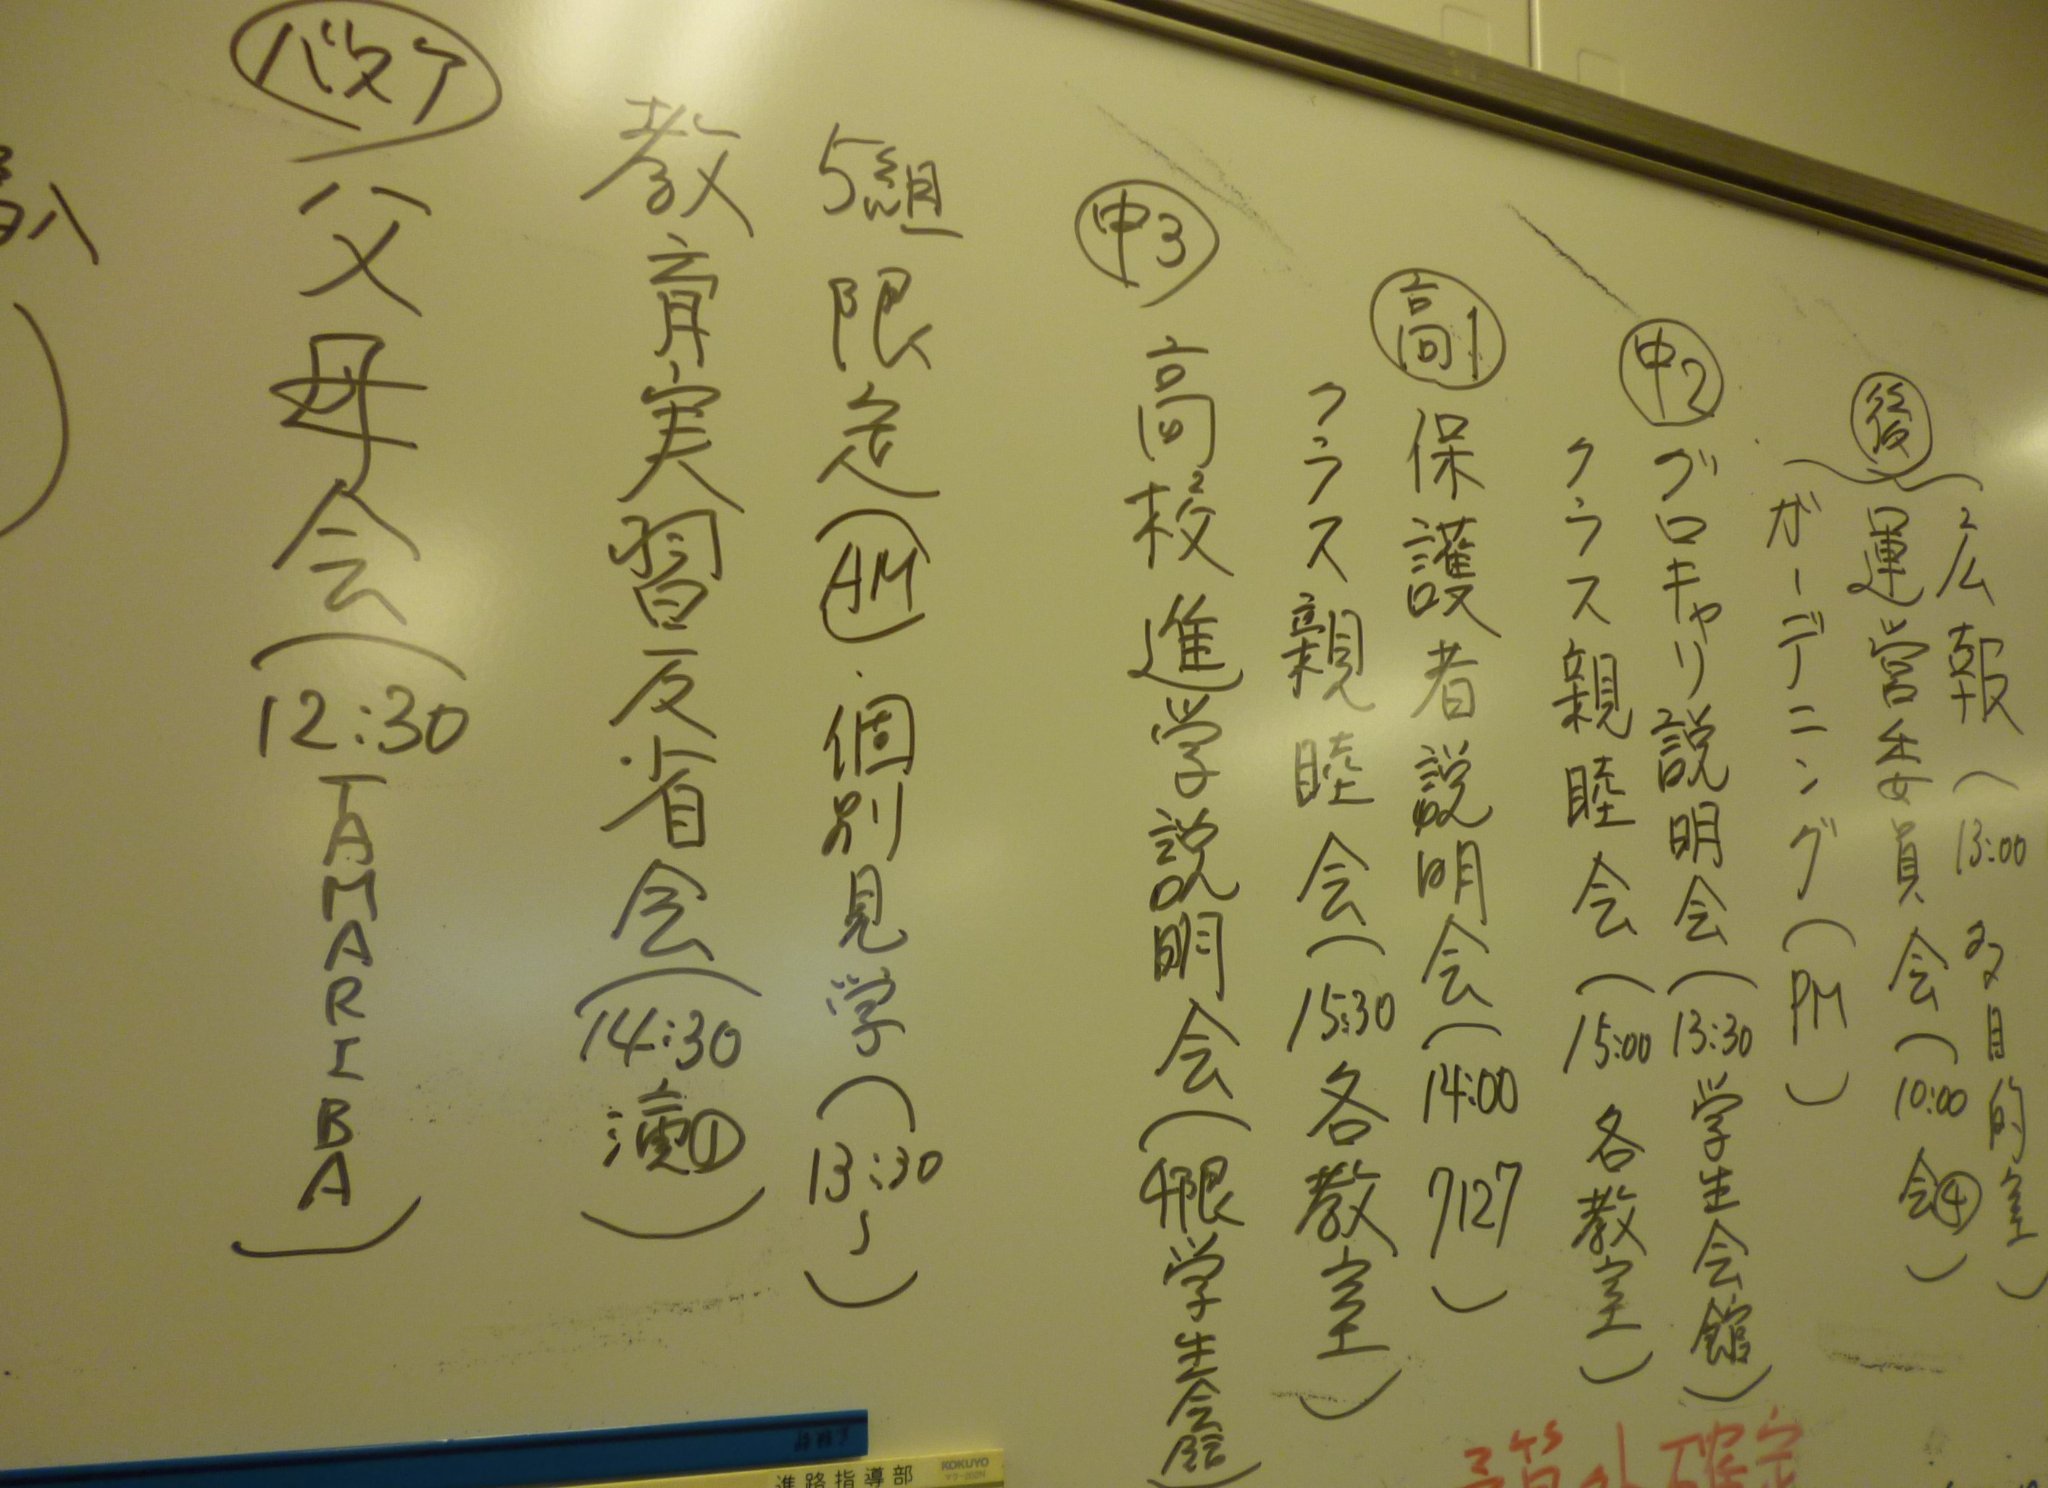 後
広報(13:00 多目的室)
運営委員会(10:00 会④)
ガーデニング(PM)
中2
プロキャリ説明会(13:30 学生会館)
クラス親睦会(15:00 各教室)
高1
保護者説明会(14:00 7127)
クラス親睦会(15:30 各教室)
中3
高校進学説明会(4限 学生会館)
5組限定(AM)・個別見学(13:30〜)
教育実習反省会(14:30 演①)
バスケ
父母会(12:30 TAMARIBA)
進路指導部
KOKUYO